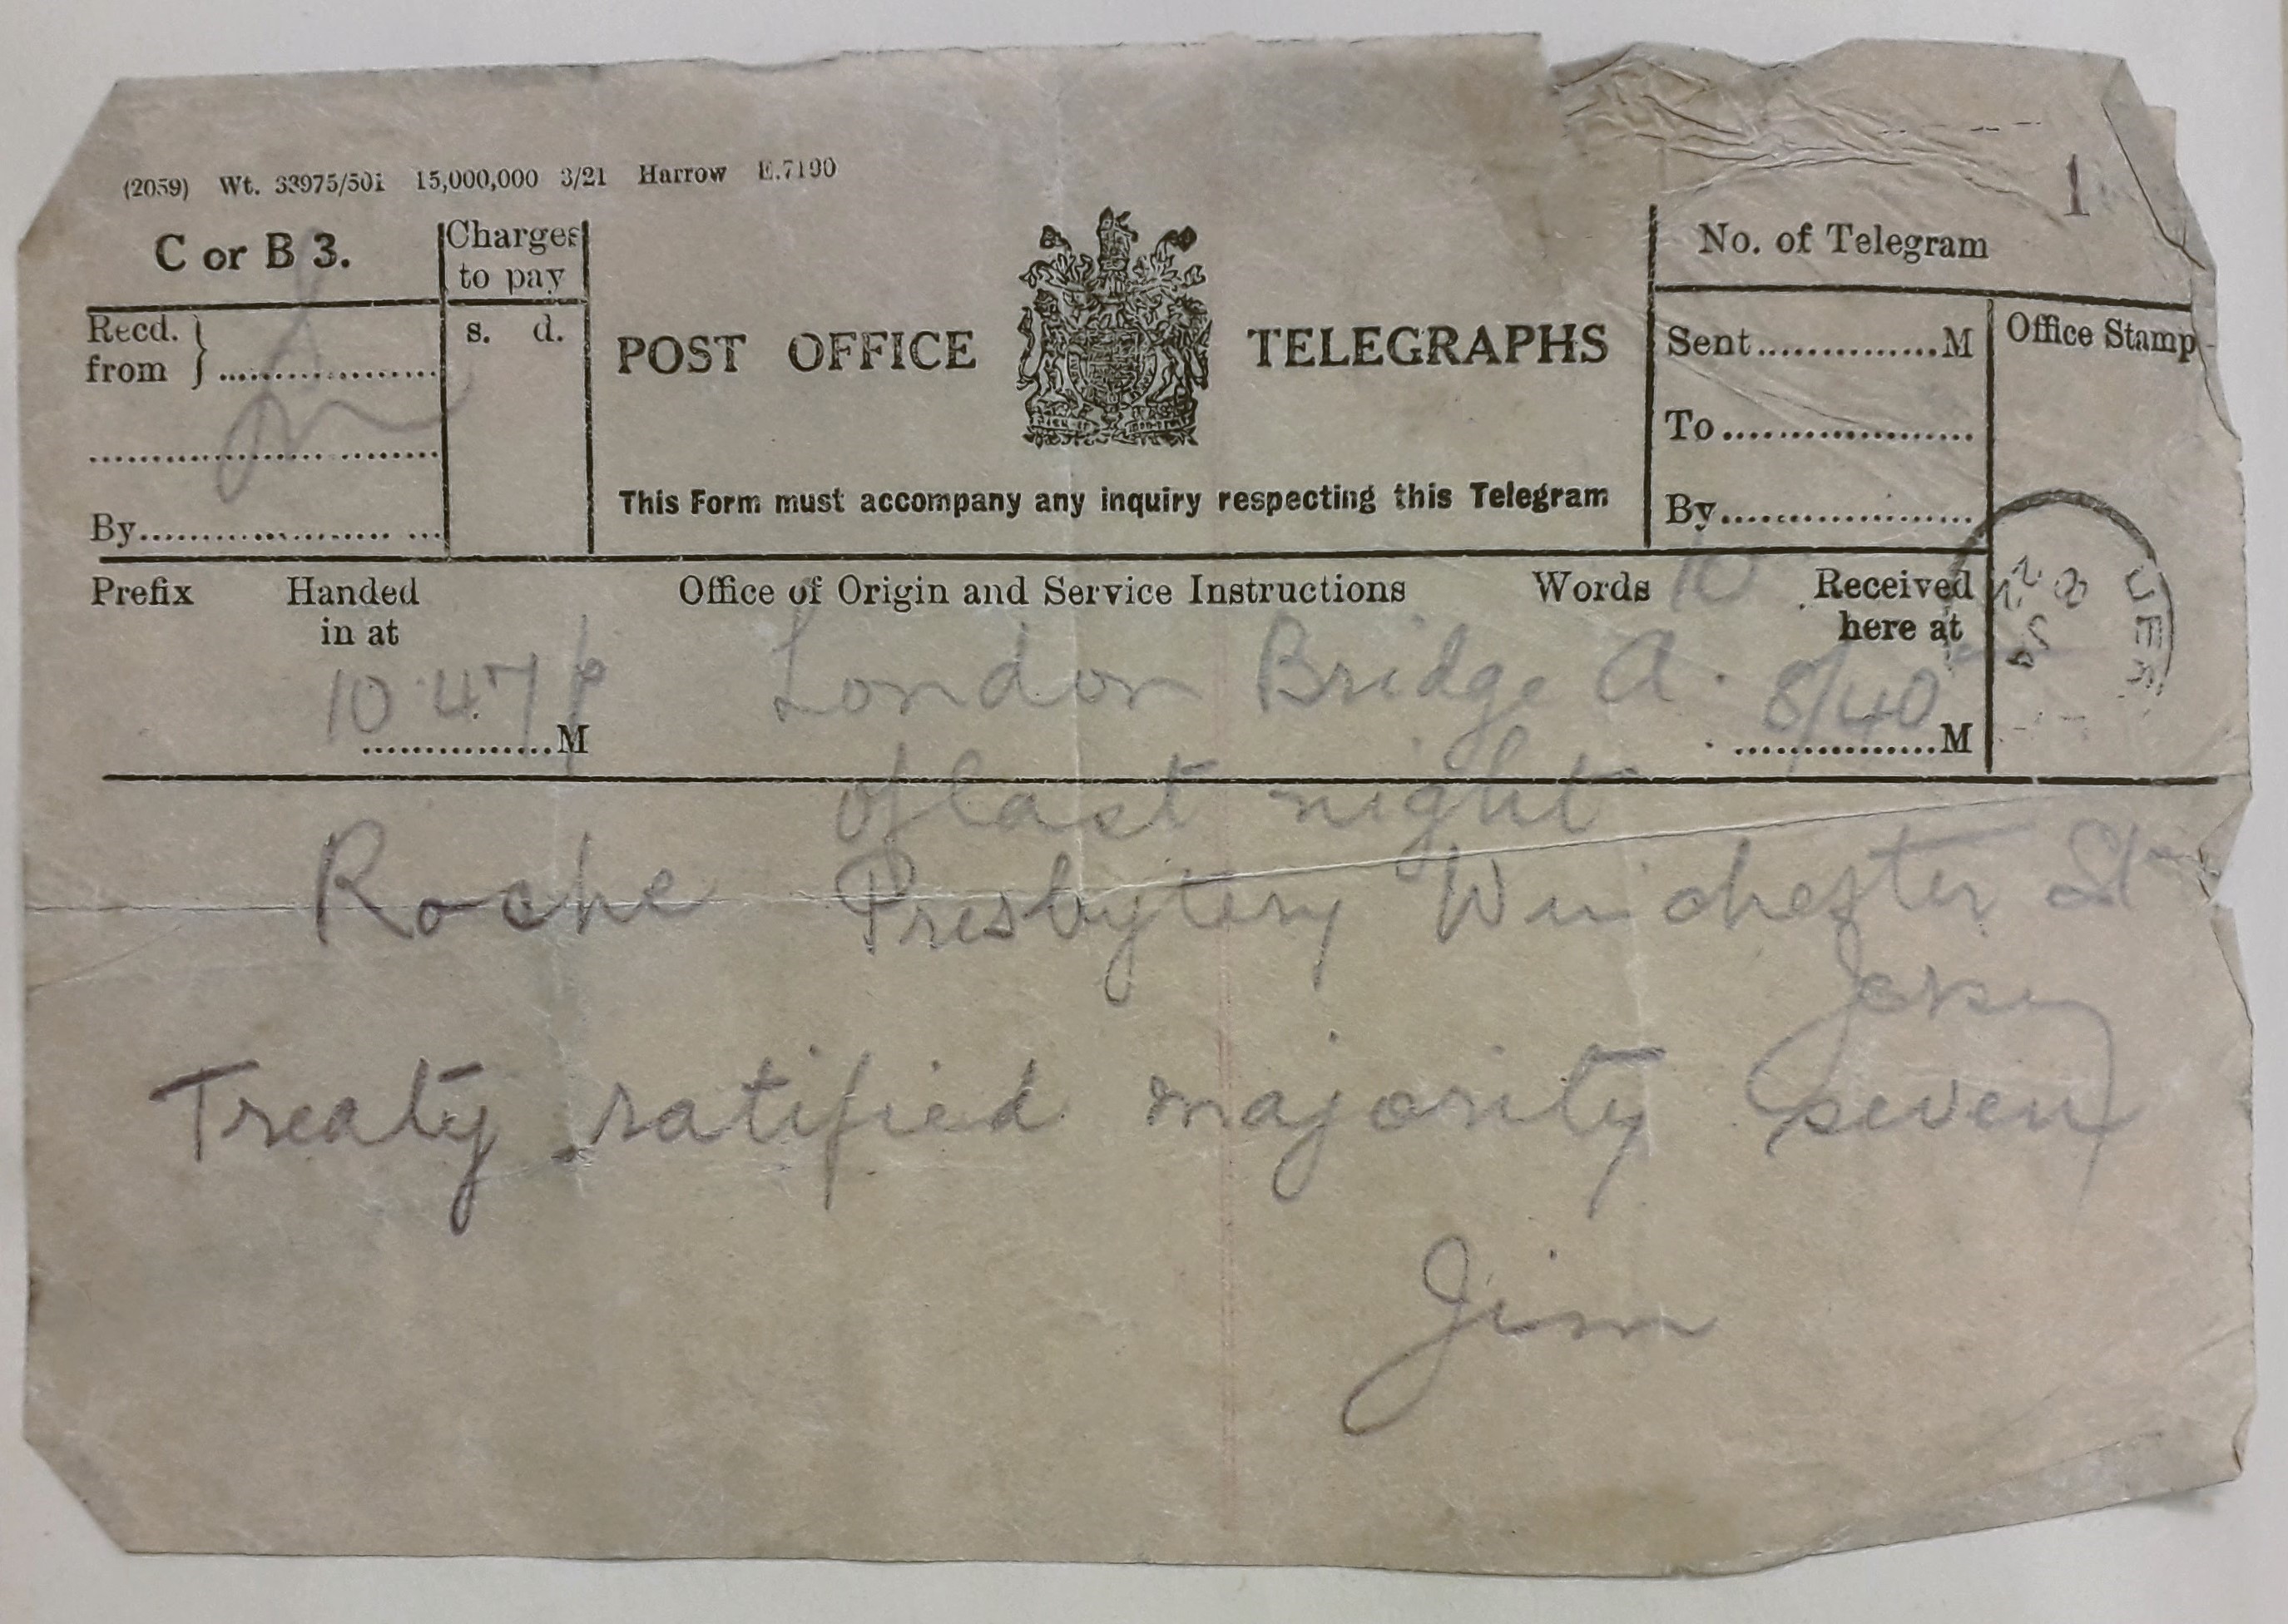 (2059) Wt. 33975/501 15,000,000 3/21 Harrow E.7190
1
C or B 3.
Charges to pay
s. d.
Recd. from
By
POST OFFICE TELEGRAPHS
This Form must accompany any inquiry respecting this Telegram
No. of Telegram
Sent M
To
By
Office Stamp
Prefix Handed in at Office of Origin and Service Instructions Words 10 Received here at
10.47 p M London Bridge A. 8/40 M
of last night
Roche Presbytery Winchester St
Jersey
Treaty ratified majority seven
Jim